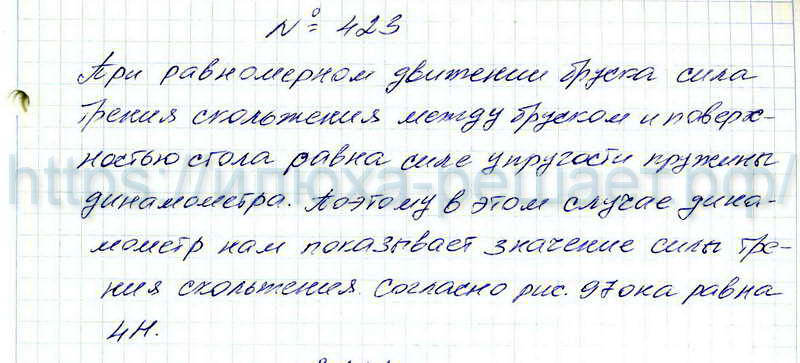 № 423
При равномерном движении бруска сила
трения скольжения между бруском и поверх-
ностью стола равна силе упругости пружины
динамометра. Поэтому в этом случае дина-
мометр нам показывает значение силы тре-
ния скольжения. Согласно рис. 97 она равна
4Н.